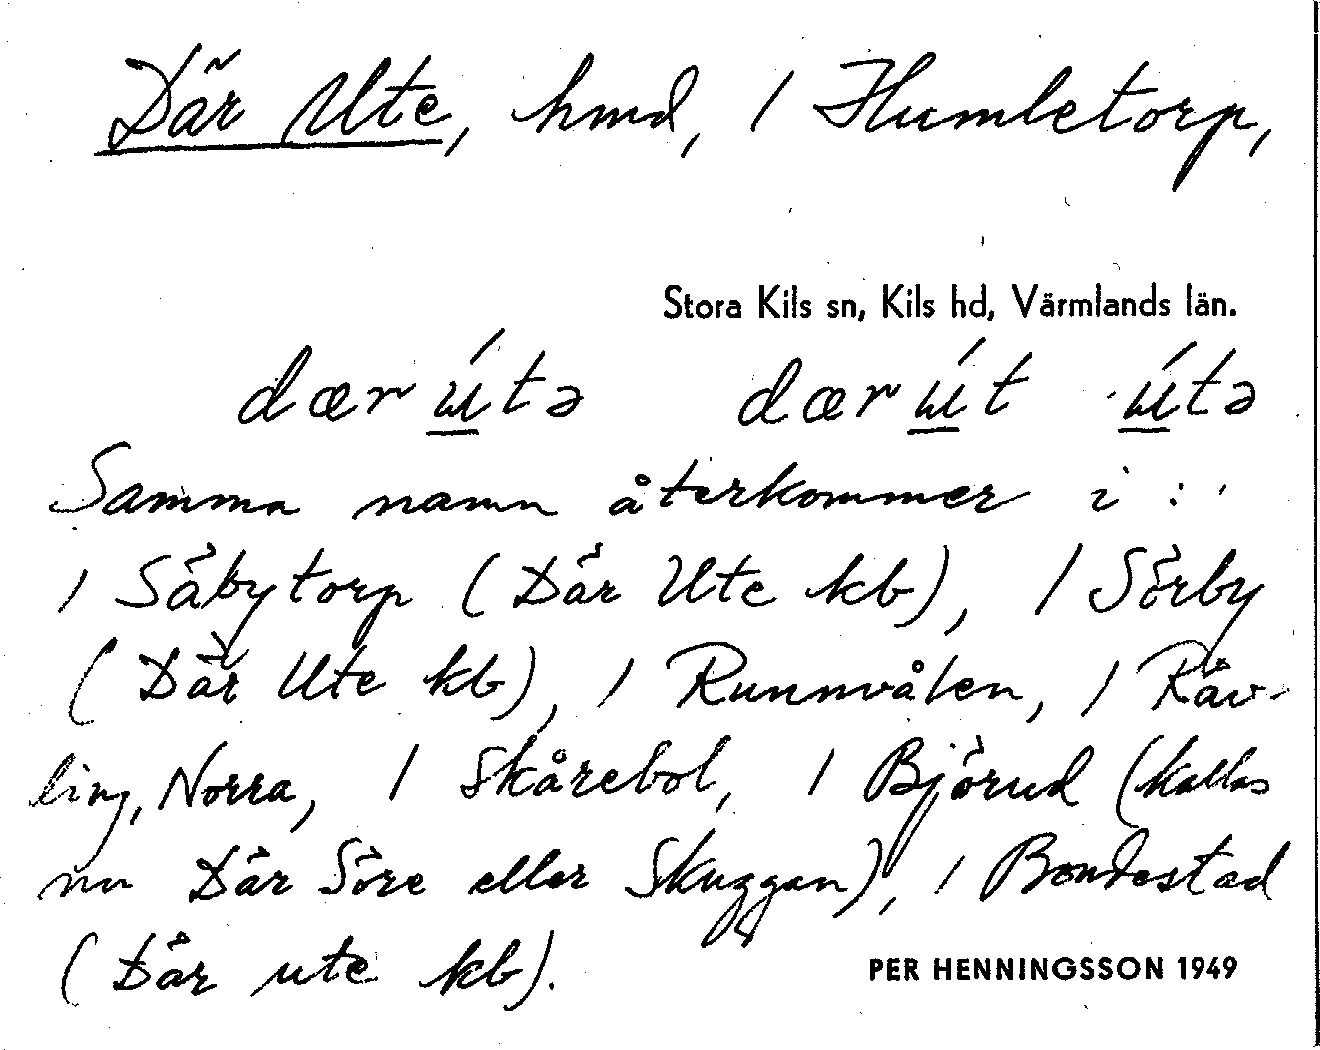 Där Ute, hmd, 1 Humletorp,
Stora Kils sn, Kils hd, Värmlands län.
dær útə dær út útə
Samma namn återkommer i :
1 Säbytorp (Där Ute kb), 1 Sörby
(Där Ute kb), 1 Runnvålen, 1 Räv-
ling, Norra, 1 Skårebol, 1 Björud (kallas
nu Där Söre eller Skuggan), 1 Bondestad
(Där ute kb).
PER HENNINGSSON 1949